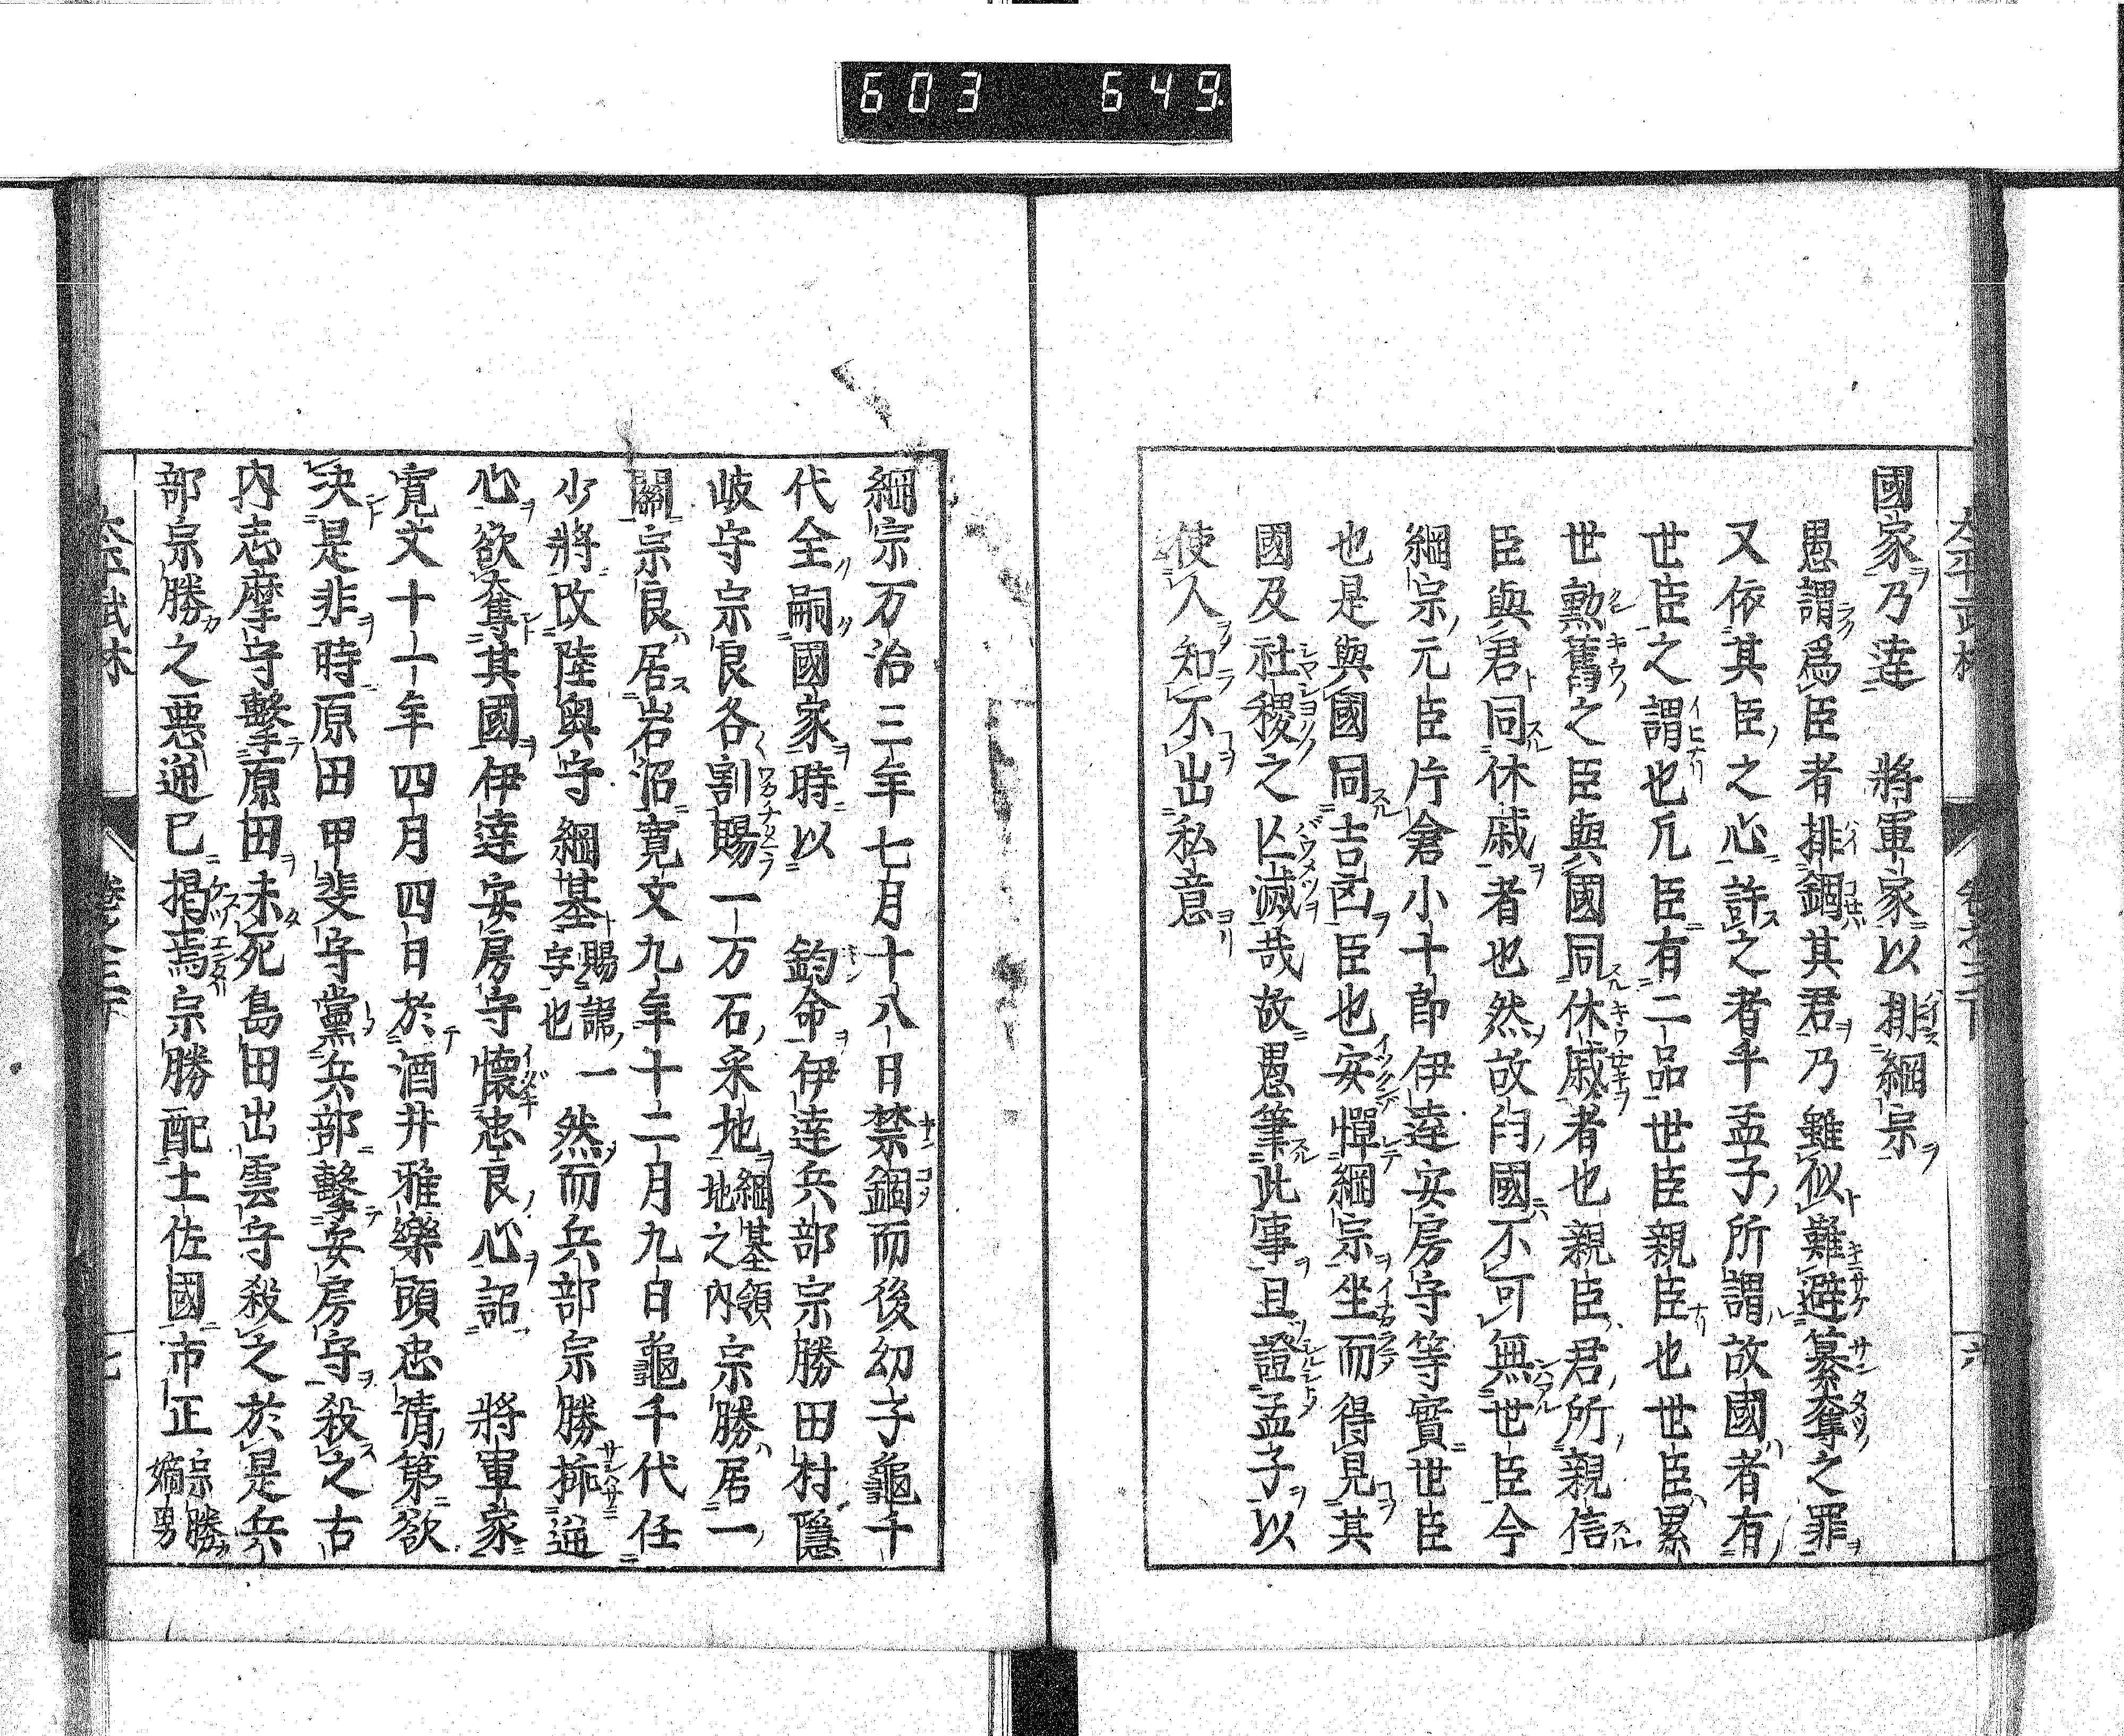 603 649.
國家乃達 將軍家以排綱宗
愚謂爲臣者排錮其君乃雖似難避簒奪之罪
又依其臣之心許之者乎孟子所謂故國者有
世臣之謂也凢臣有二品世臣親臣也世臣累
世勲舊之臣與國同休戚者也親臣君所親信
臣與君同休戚者也然故曰國不可無世臣今
綱宗元臣片倉小十郎伊達安房守等實世臣
也是與國同吉凶臣也安憚綱宗坐而得見其
國及社稷之亾滅哉故愚筆此事且證孟子以
使人知不出私意
綱宗万治三年七月十八日禁錮而後幼子龜千
代全嗣國家時以 鈞命伊達兵部宗勝田村隱
岐守宗良各割賜一万石采地綱基領地之内宗勝居一
關宗良居岩沼寛文九年十二月九日龜千代任
少將改陸奥守綱基賜諱一字也然而兵部宗勝挾逆
心欲奪其國伊達安房守懷忠良心詔 將軍家
寛文十一年四月四日於酒井雅樂頭忠清第欲
决是非時原田甲斐守黨兵部擊安房守殺之古
内志摩守擊原田未死島田出雲守殺之於是兵
部宗勝之惡逆已揭焉宗勝配土佐國市正宗勝嫡男